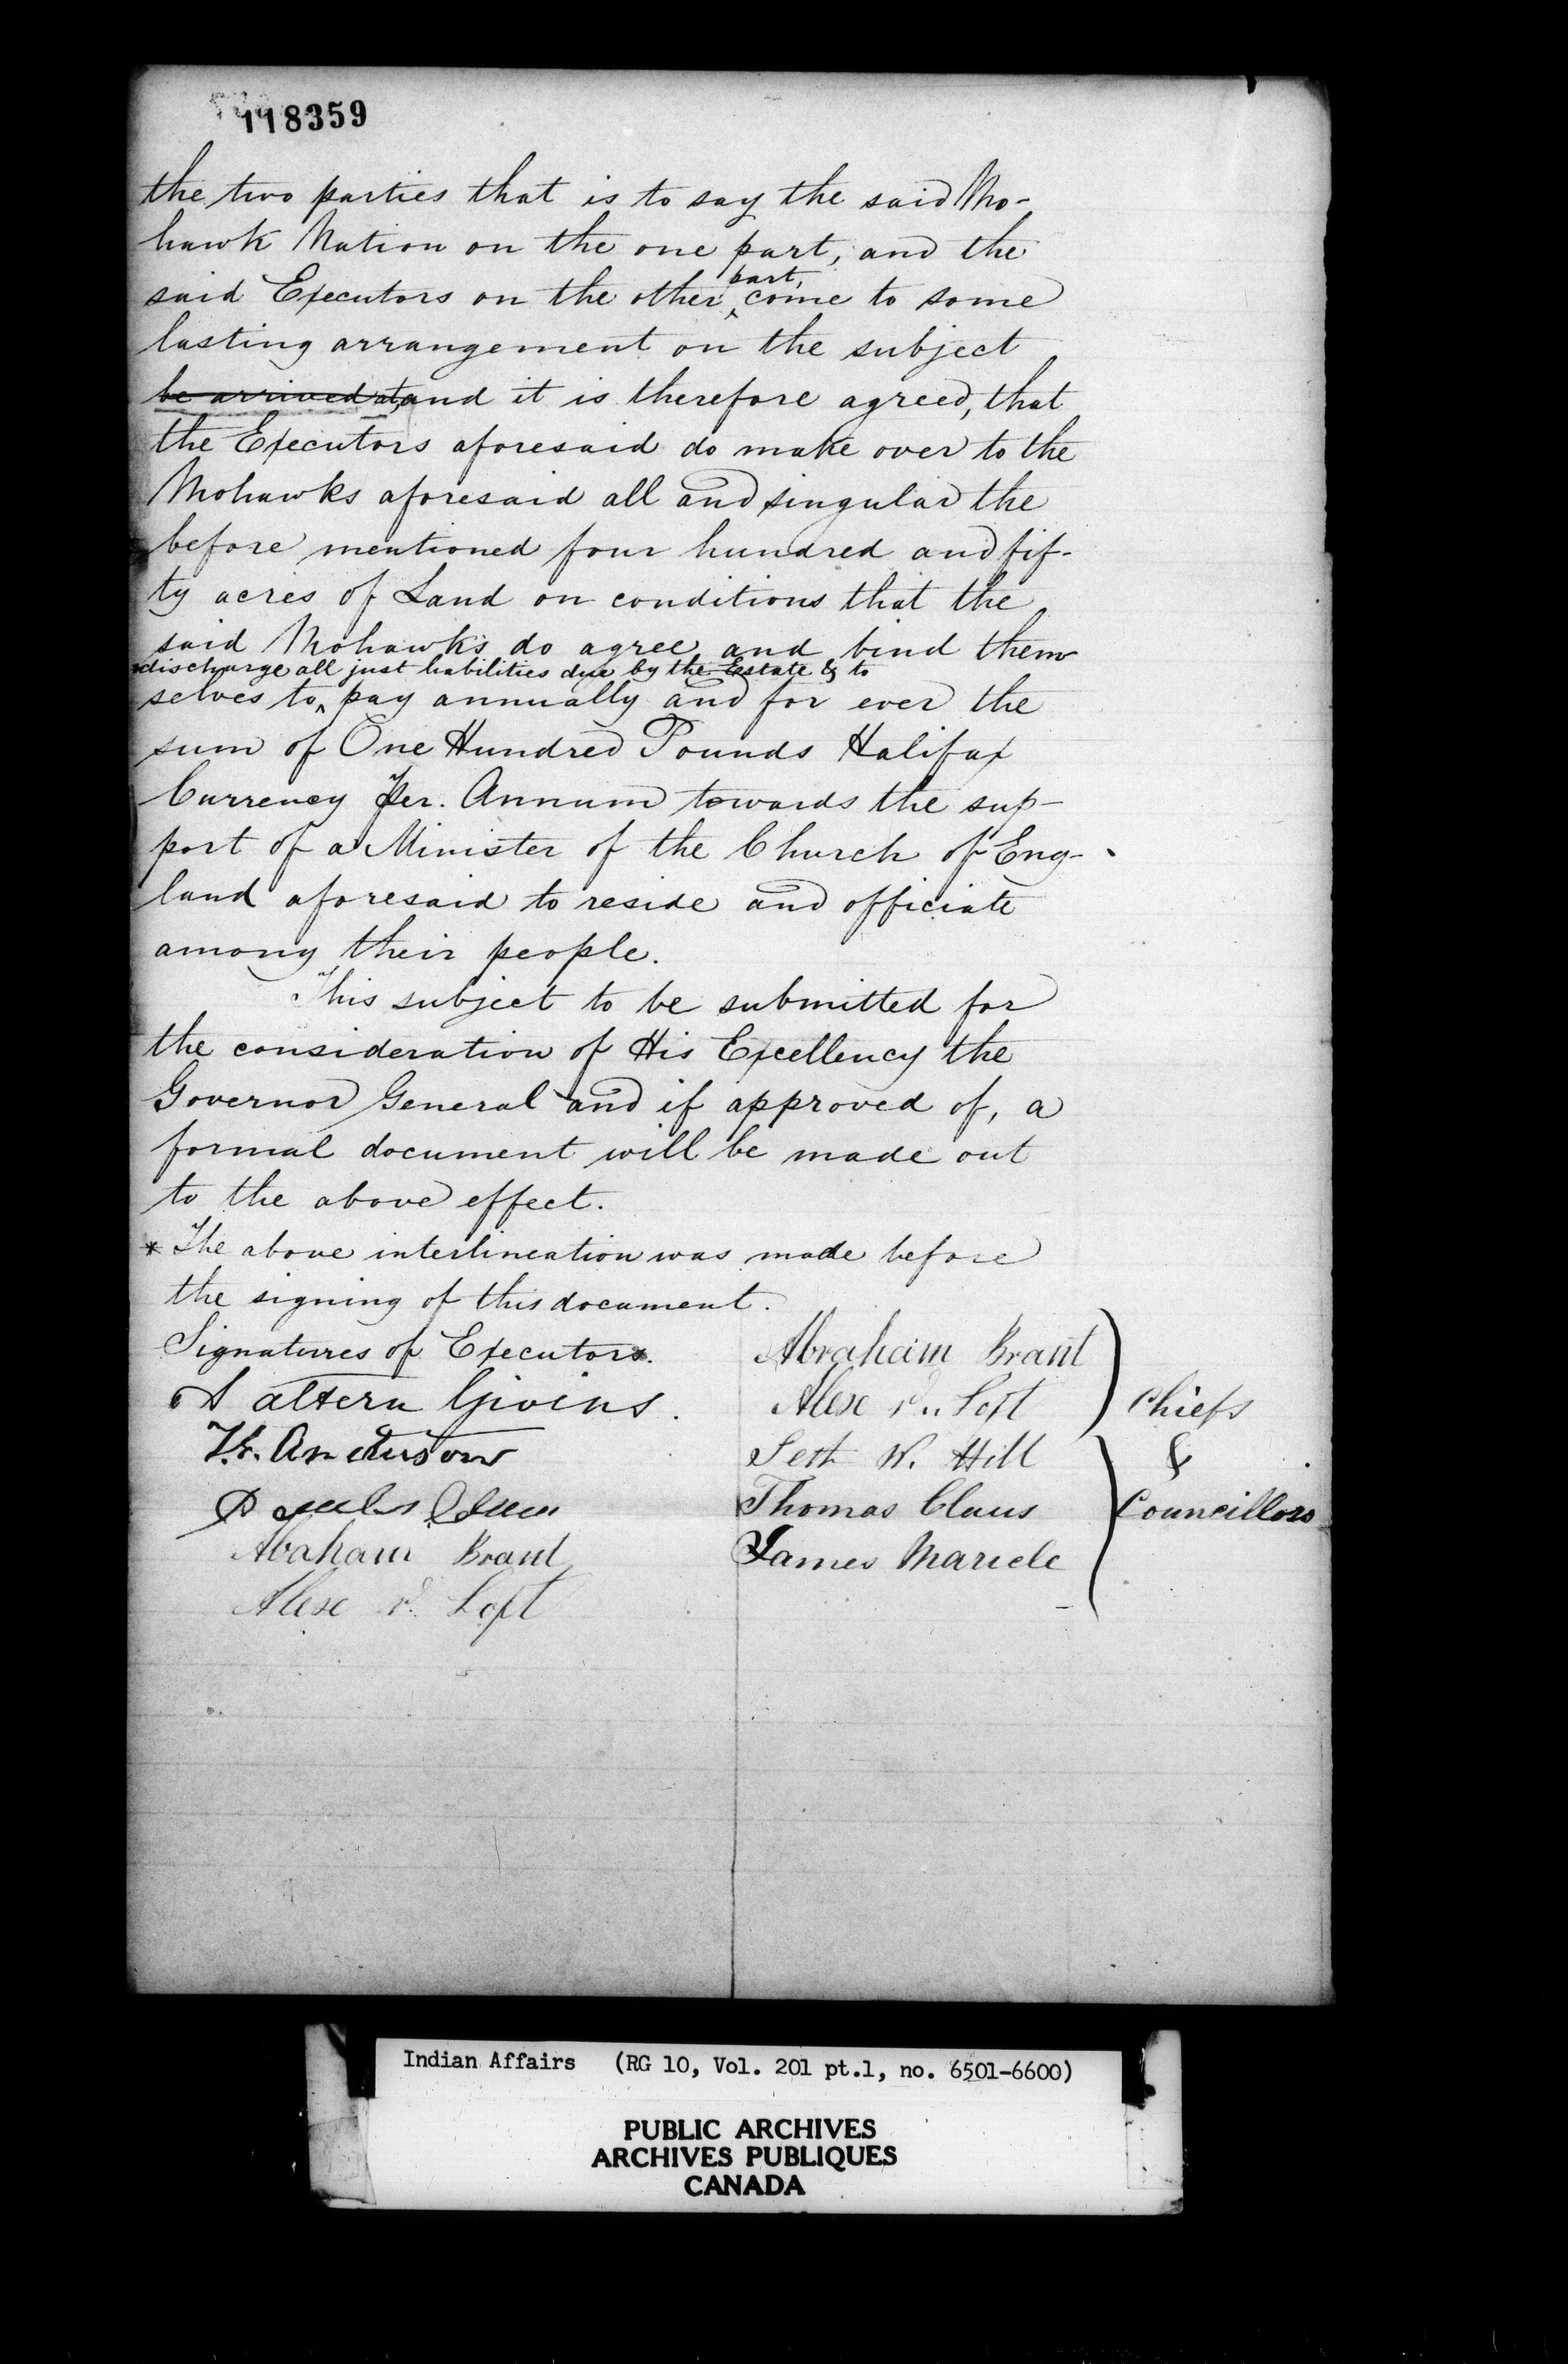 118359
the two parties that is to say the said Mo-
hawk Nation on the one part, and the
said Executors on the other part, come to some
lasting arrangement on the subject
be arrived at, and it is therefore agreed, that
the Executors aforesaid do make over to the
Mohawks aforesaid all and singular the
before mentioned four hundred and fif-
ty acres of Land on conditions that the
said Mohawks do agree and bind them
*discharge all just liabilities due by the Estate & to
selves to ^ pay annually and for ever the
sum of One Hundred Pounds Halifax
Currency Per. Annum towards the sup-
port of a Minister of the Church of Eng-
land aforesaid to reside and officiate
among their people.
This subject to be submitted for
the consideration of His Excellency the
Governor General and if approved of, a
formal document will be made out
to the above effect.
* The above interlineation was made before
the signing of this document.
Signatures of Executors.
Saltern Givins.
Anderson
Abaham Brant
Alexe Loft
Abraham Brant
Alexe Loft
Seth W. Hill
Thomas Claus
James Maricle
Chiefs
&
Councillors
Indian Affairs (RG 10, Vol. 201 pt.1, no. 6501-6600)
PUBLIC ARCHIVES
ARCHIVES PUBLIQUES
CANADA